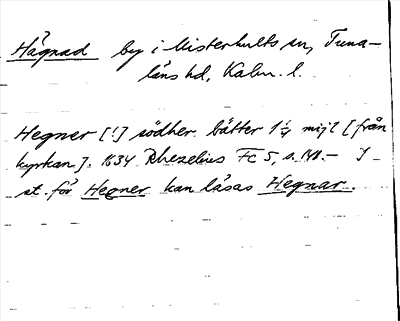 Hägnad by i Misterhults sn, Tuna-
läns hd, Kalm. l.
Hegner [!] södher bätter 1 1/4 mijl [från
kyrkan]. 1634 Rhezelius Fc 5, s. 141. — I
st. för Hegner kan läsas Hegnar.